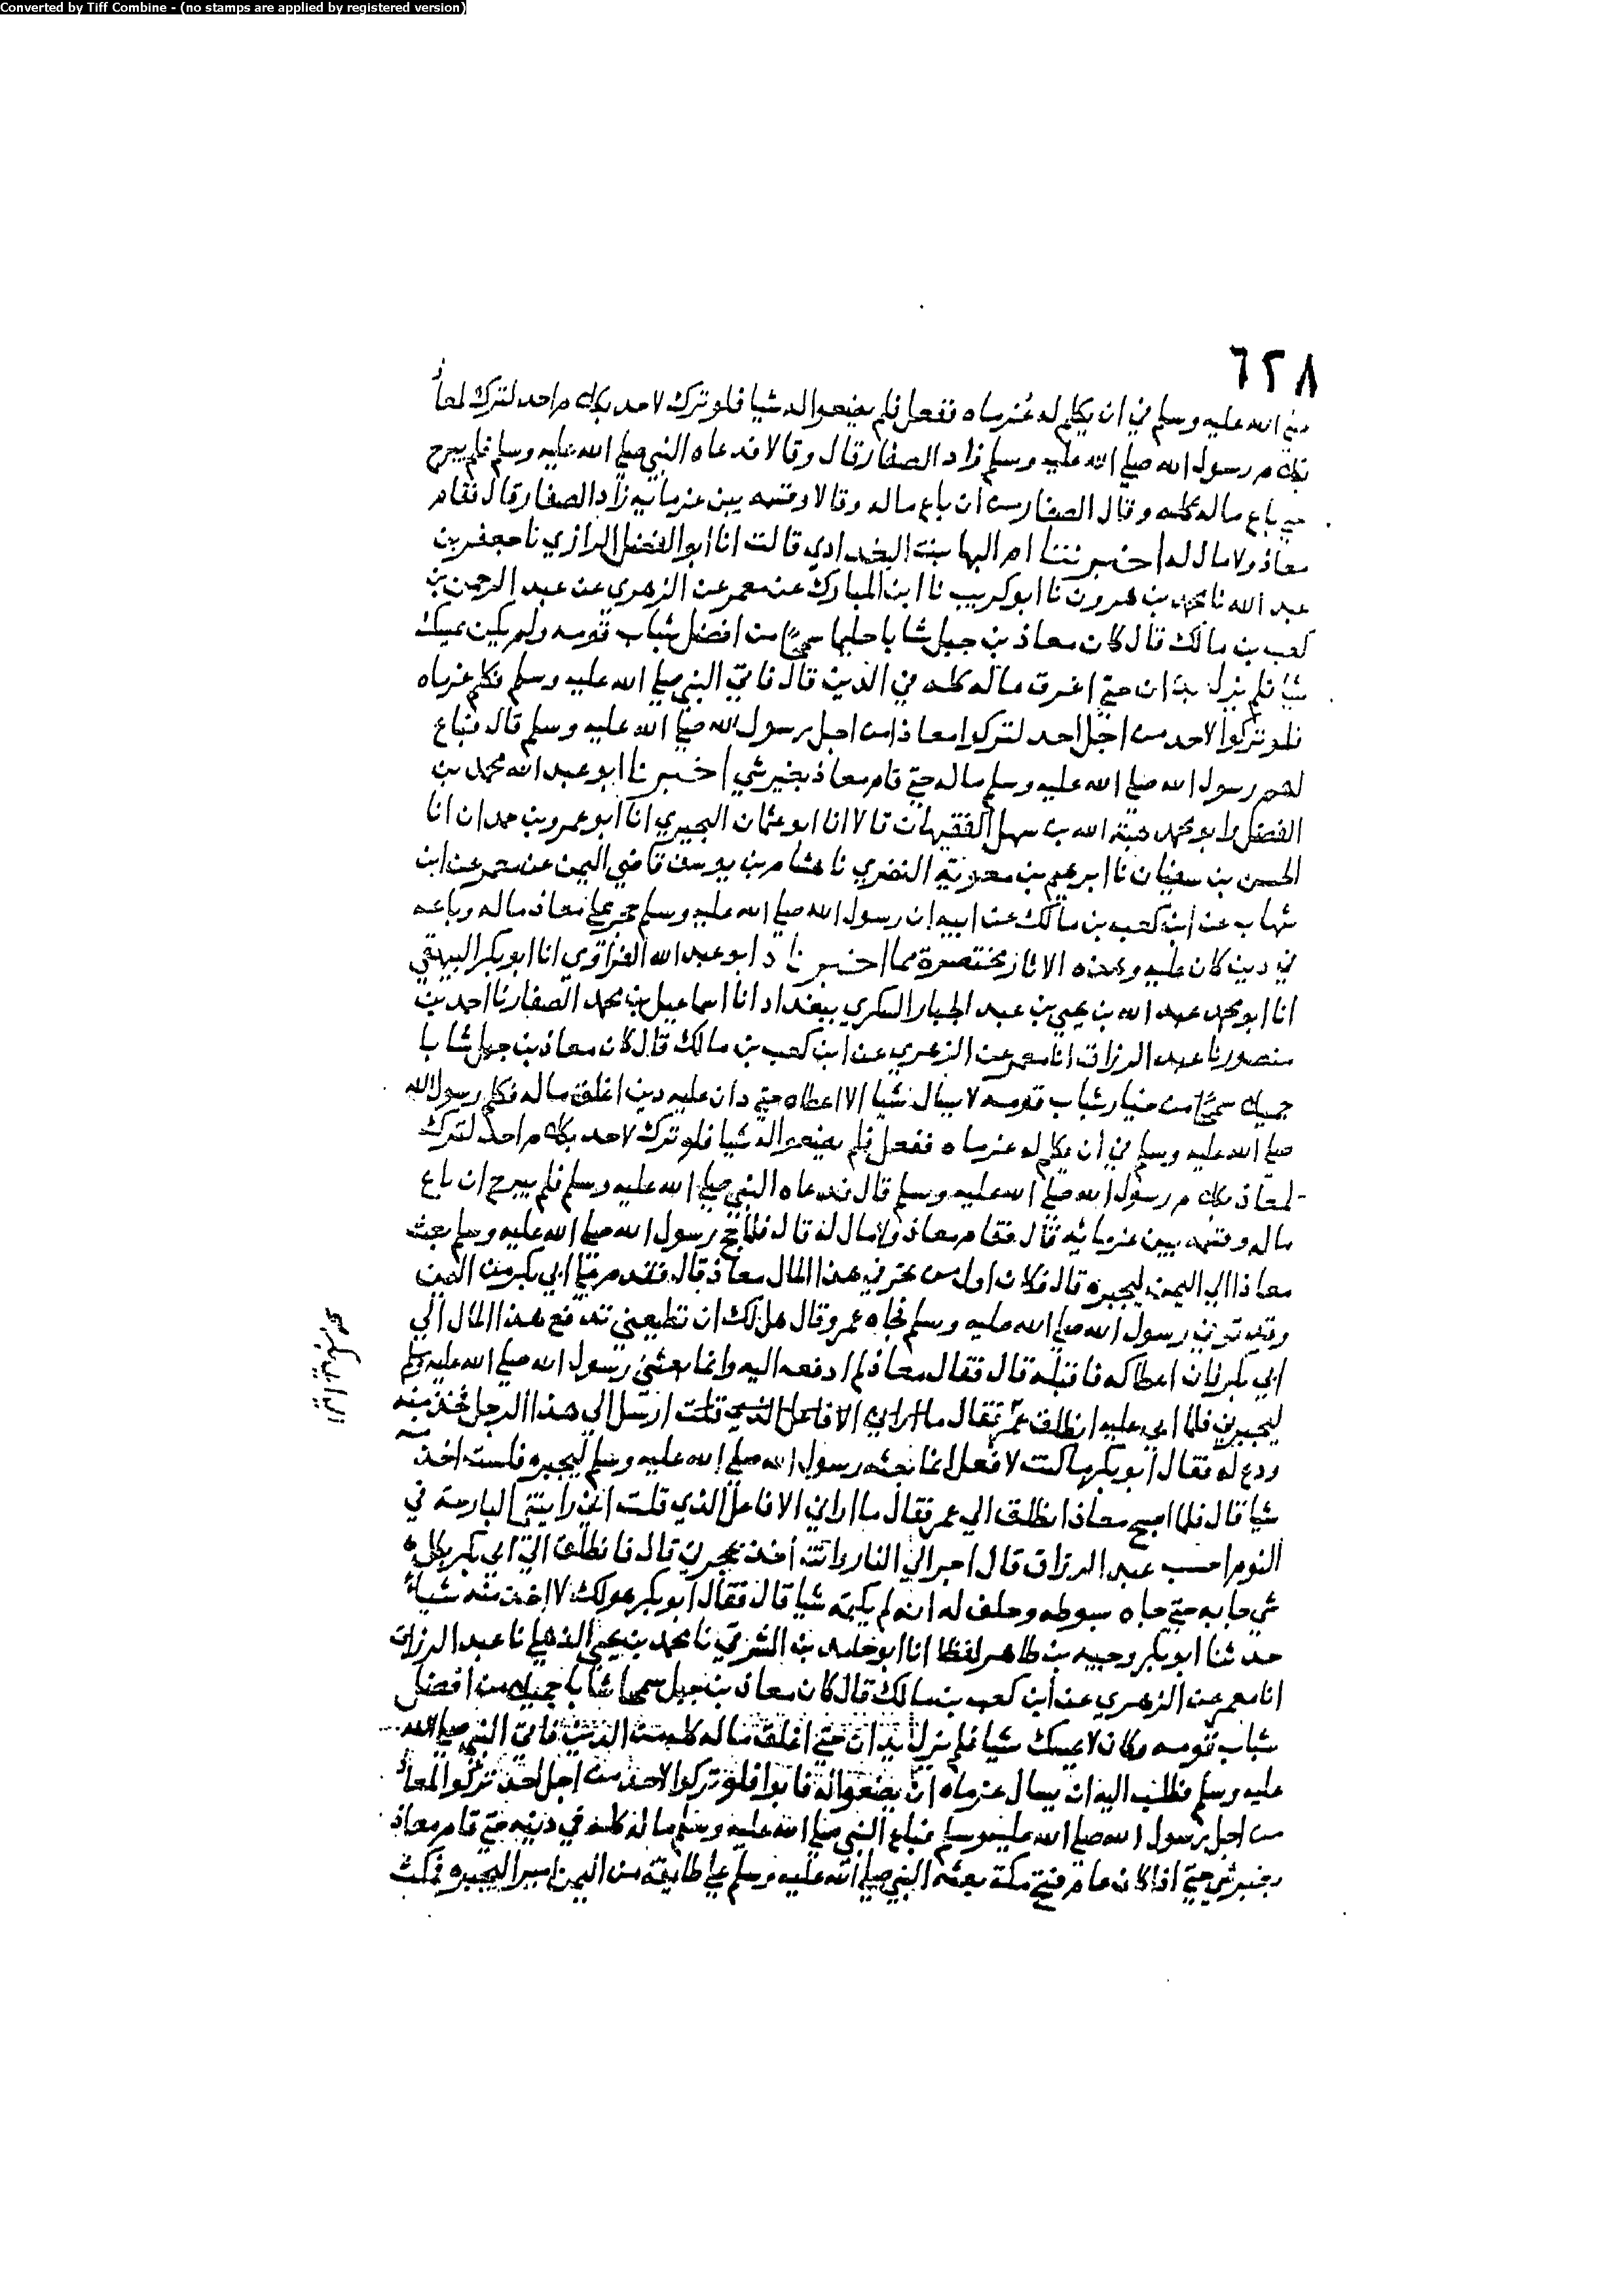 Converted by Tiff Combine - (no stamps are applied by registered version)
٦٢٨
صلى الله عليه وسلم في ان يكلم له غرماه ففعل فلم يضعوا له شيا فلو ترك لاحد بكلام احد لترك لمعاذ
بكلام رسول الله صلى الله عليه وسلم زاد الصفار قال وقالا فدعاه النبي صلى الله عليه وسلم فلم يبرح
حتى باع ماله كله وقال الصفار من ان باع ماله وقالا وقسمه بين غرمايه زاد الصفار قال فقام
معاذ ولا مال له اخبرتنا ام البها بنت البغدادي قالت انا ابو الفضل الرازي نا جعفر بن
عبد الله نا محمد بن هرون نا ابو كريب نا ابن المبارك عن معمر عن الزهري عن عبد الرحمن بن
كعب بن مالك قال كان معاذ بن جبل شابا حليما سمحا من افضل شباب قومه ولم يكن يمسك
شيا فلم يزل يدان حتى اغرق ماله كله في الدين قال فاتى النبي صلى الله عليه وسلم فكلم غرماه
فلو تركوا لاحد من اجل احد لتركوا معاذا من اجل رسول الله صلى الله عليه وسلم قال فباع
لهم رسول الله صلى الله عليه وسلم ماله حتى قام معاذ بغير شي اخبرنا ابو عبد الله محمد بن
الفضل وابو محمد هبة الله بن سهل الفقيهان قالا انا ابو عثمان البحيري انا ابو عمرو بن حمدان انا
الحسن بن سفيان نا ابرهيم بن معوية النضري نا هشام بن يوسف قاضي اليمن عن معمر عن ابن
شهاب عن ابن كعب بن مالك عن ابيه ان رسول الله صلى الله عليه وسلم حجر على معاذ ماله وباعه
في دين كان عليه وهذه الاثار مختصرة مما اخبرنا ابو عبد الله الفراوي انا ابو بكر البيهقي
انا ابو محمد عبد الله بن يحيى بن عبد الجبار السكري ببغداد انا اسماعيل بن محمد الصفار نا احمد بن
منصور نا عبد الرزاق انا معمر عن الزهري عن ابن كعب بن مالك قال كان معاذ بن جبل شابا
جميلا سمحا من خيار شباب قومه لا يسال شيا الا اعطاه حتى دان عليه دين اغلق ماله فكلم رسول الله
صلى الله عليه وسلم في ان يكلم له غرماه ففعل فلم يضعوا له شيا فلو ترك لاحد بكلام احد لترك
لمعاذ بكلام رسول الله صلى الله عليه وسلم قال فدعاه النبي صلى الله عليه وسلم فلم يبرح ان باع
ماله وقسمه بين غرمائه قال فقام معاذ ولا مال له قال فلما حج رسول الله صلى الله عليه وسلم بعث
معاذا الى اليمن ليجبره قال فكان اول من تجر في هذا المال معاذ قال فقدم على ابي بكر من اليمن
وقد توفي رسول الله صلى الله عليه وسلم فجاه عمر وقال هل لك ان تطيعني تدفع هذا المال الى
ابي بكر فان اعطاكه فاقبله قال فقال معاذ لم ادفعه اليه وانما بعثني رسول الله صلى الله عليه وسلم
ليجبرني فلما ابى عليه انطلق عمر فقال ما اراني الا فاعل الذي قلت ارسل الى هذا الرجل فخذ منه
ودع له فقال ابو بكر ما كنت لافعل انما بعثه رسول الله صلى الله عليه وسلم ليجبره فلست اخذ منه
شيا قال فلما اصبح معاذ انطلق الى عمر فقال ما اراني الا فاعل الذي قلت اني رايتني البارحة في
النوم احسب عبد الرزاق قال اجر الى النار وانت اخذ بحجزتي قال فانطلق الى ابي بكر بكل
شي جا به حتى جاه بسوطه وحلف له انه لم يكتمه شيا قال فقال ابو بكر هو لك لا اخذ منه شيا
حدثنا ابو بكر وجيه بن طاهر لفظا انا ابو حامد بن الشرقي نا محمد بن يحيى الذهلي نا عبد الرزاق
انا معمر عن الزهري عن ابن كعب بن مالك قال كان معاذ بن جبل سمحا شابا جميلا من افضل
شباب قومه وكان لا يمسك شيا فلم يزل يدان حتى اغلق ماله كله من الدين فاتى النبي صلى الله
عليه وسلم فطلب اليه ان يسال غرماه ان يضعوا له فابوا فلو تركوا لاحد من اجل احد تركوا لمعاذ
من اجل رسول الله صلى الله عليه وسلم فباع النبي صلى الله عليه وسلم ماله كله في دينه حتى قام معاذ
بغير شي حتى اذا كان عام فتح مكة بعثه النبي صلى الله عليه وسلم على طايفة من اليمن اميرا ليجبره فمكث